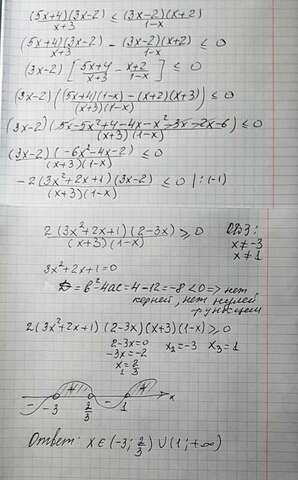 (5x+4)(3x-2)/(x+3) ≤ (3x-2)(x+2)/(1-x)
(5x+4)(3x-2)/(x+3) - (3x-2)(x+2)/(1-x) ≤ 0
(3x-2) [(5x+4)/(x+3) - (x+2)/(1-x)] ≤ 0
(3x-2) ((5x+4)(1-x) - (x+2)(x+3))/((x+3)(1-x)) ≤ 0
(3x-2)(5x-5x²+4-4x-x²-3x-2x-6)/((x+3)(1-x)) ≤ 0
(3x-2)(-6x²-4x-2)/((x+3)(1-x)) ≤ 0
-2(3x²+2x+1)(3x-2)/((x+3)(1-x)) ≤ 0 | :(-1)
2(3x²+2x+1)(2-3x)/((x+3)(1-x)) ≥ 0
ОДЗ:
x≠-3
x≠1
3x²+2x+1=0
D=b²4ac=4-12=-8<0 => нет
корней, нет нулей
функции
2(3x²+2x+1)(2-3x)(x+3)(1-x) ≥ 0
2-3x=0 x₂=-3 x₃=1
-3x=-2
x₁=2/3
- + - + x
-3 2/3 1
Ответ: x∈(-3; 2/3) ∪ (1; +∞)